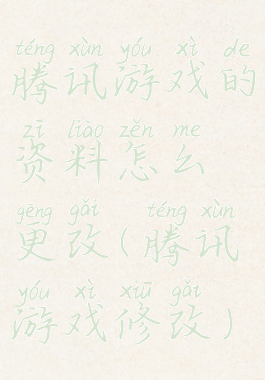 téng xùn yóu xì de
腾讯游戏的
zī liào zěn me
资料怎么
gēng gǎi téng xùn
更改(腾讯
yóu xì xiū gǎi
游戏修改)